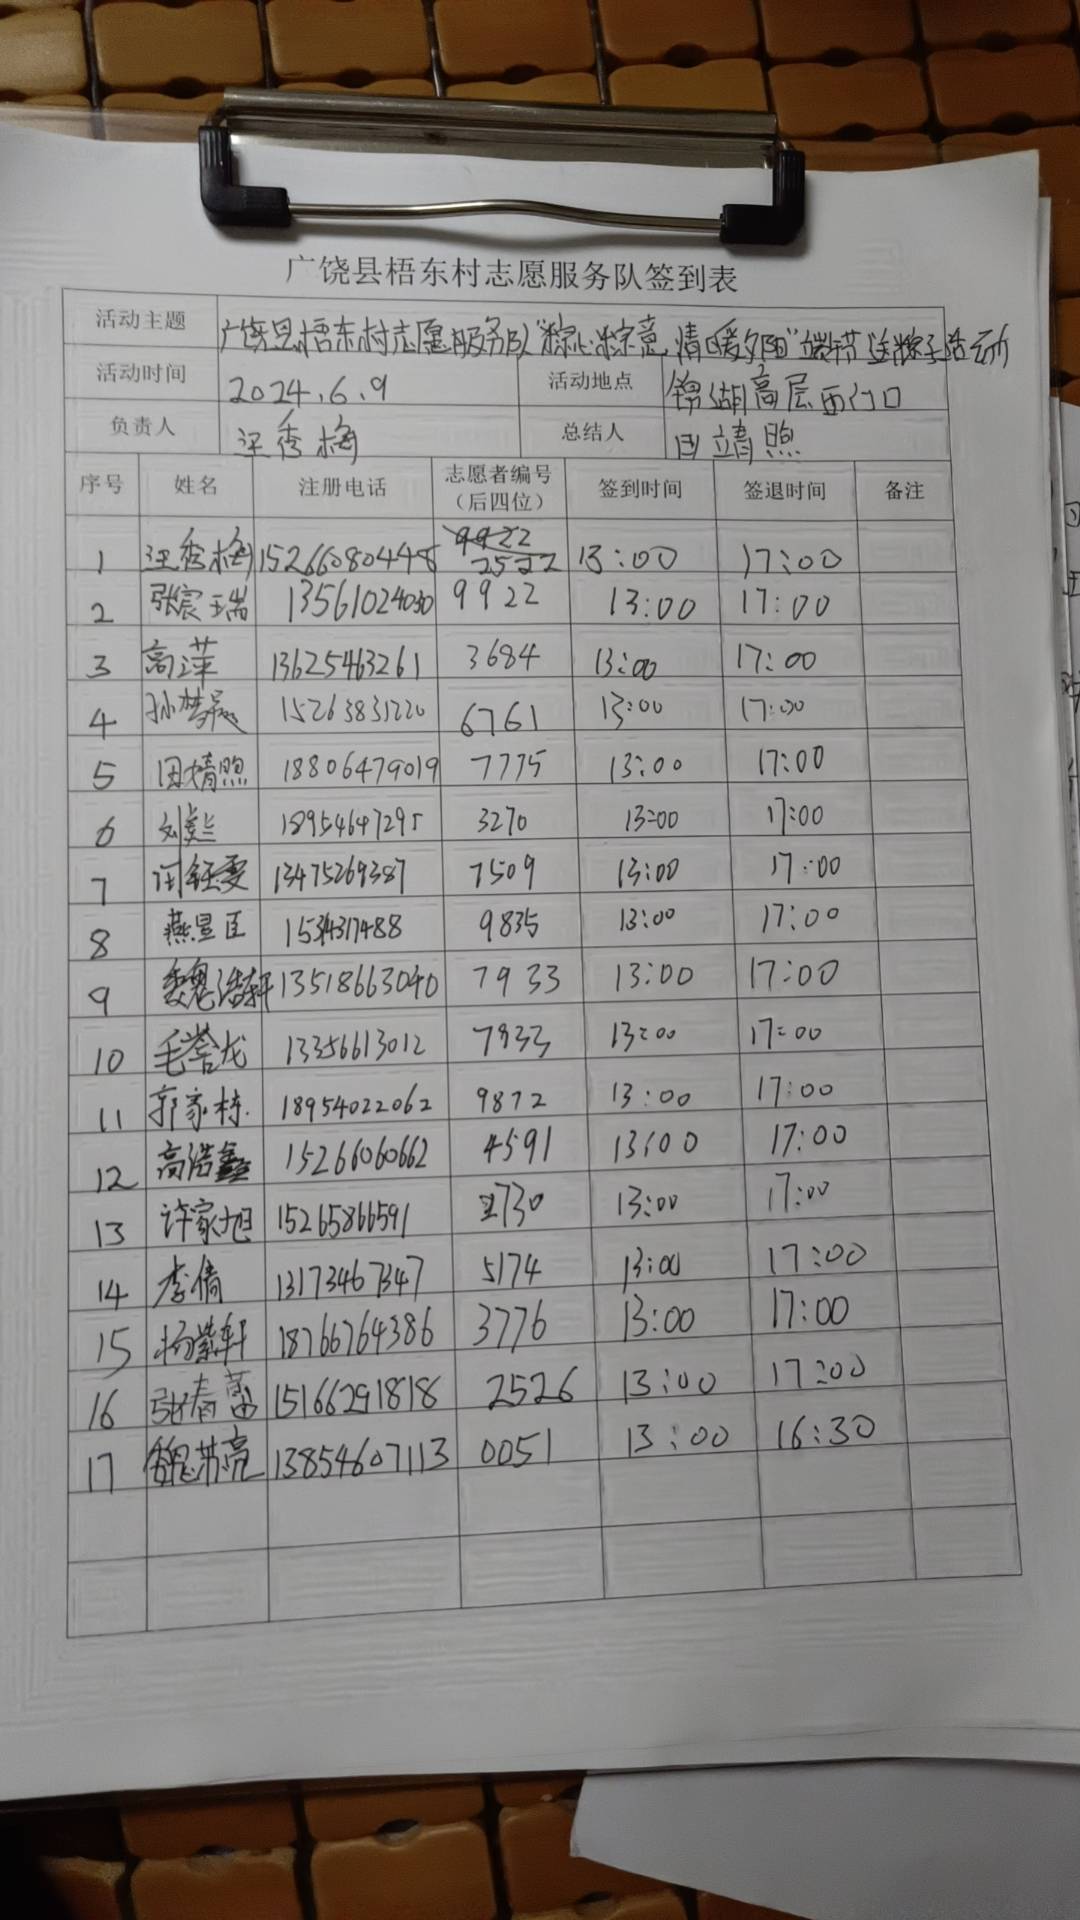 广饶县梧东村志愿服务队签到表
活动主题 广饶县梧东村志愿服务队“粽心粽意,情暖夕阳”端午节送粽子活动
活动时间 2024.6.9 活动地点 锦湖高层西门口
负责人 汪秀梅 总结人 田靖煦
序号 姓名 注册电话 志愿者编号(后四位) 签到时间 签退时间 备注
1 汪秀梅 15266080448 9922 2522 13:00 17:00
2 张宸瑞 13561024030 9922 13:00 17:00
3 高萍 13625463261 3684 13:00 17:00
4 孙梦晨 15263831220 6761 13:00 17:00
5 田靖煦 18806479019 7775 13:00 17:00
6 18954647295 3270 13:00 17:00
7 闫钰雯 13475269387 7509 13:00 17:00
8 燕昱臣 9835 13:00 17:00
9 魏浩轩 13518663040 7933 13:00 17:00
10 毛誉龙 13356613012 7833 13:00 17:00
11 郭家栋 18954022062 9872 13:00 17:00
12 高浩鑫 15266060662 4591 13:00 17:00
13 许家旭 15265866591 13:00 17:00
14 李倩 13173467347 5174 13:00 17:00
15 杨紫轩 18766764386 3776 13:00 17:00
16 张春蕾 15166291818 2526 13:00 17:00
17 魏苏亮 13854607113 0051 13:00 16:30